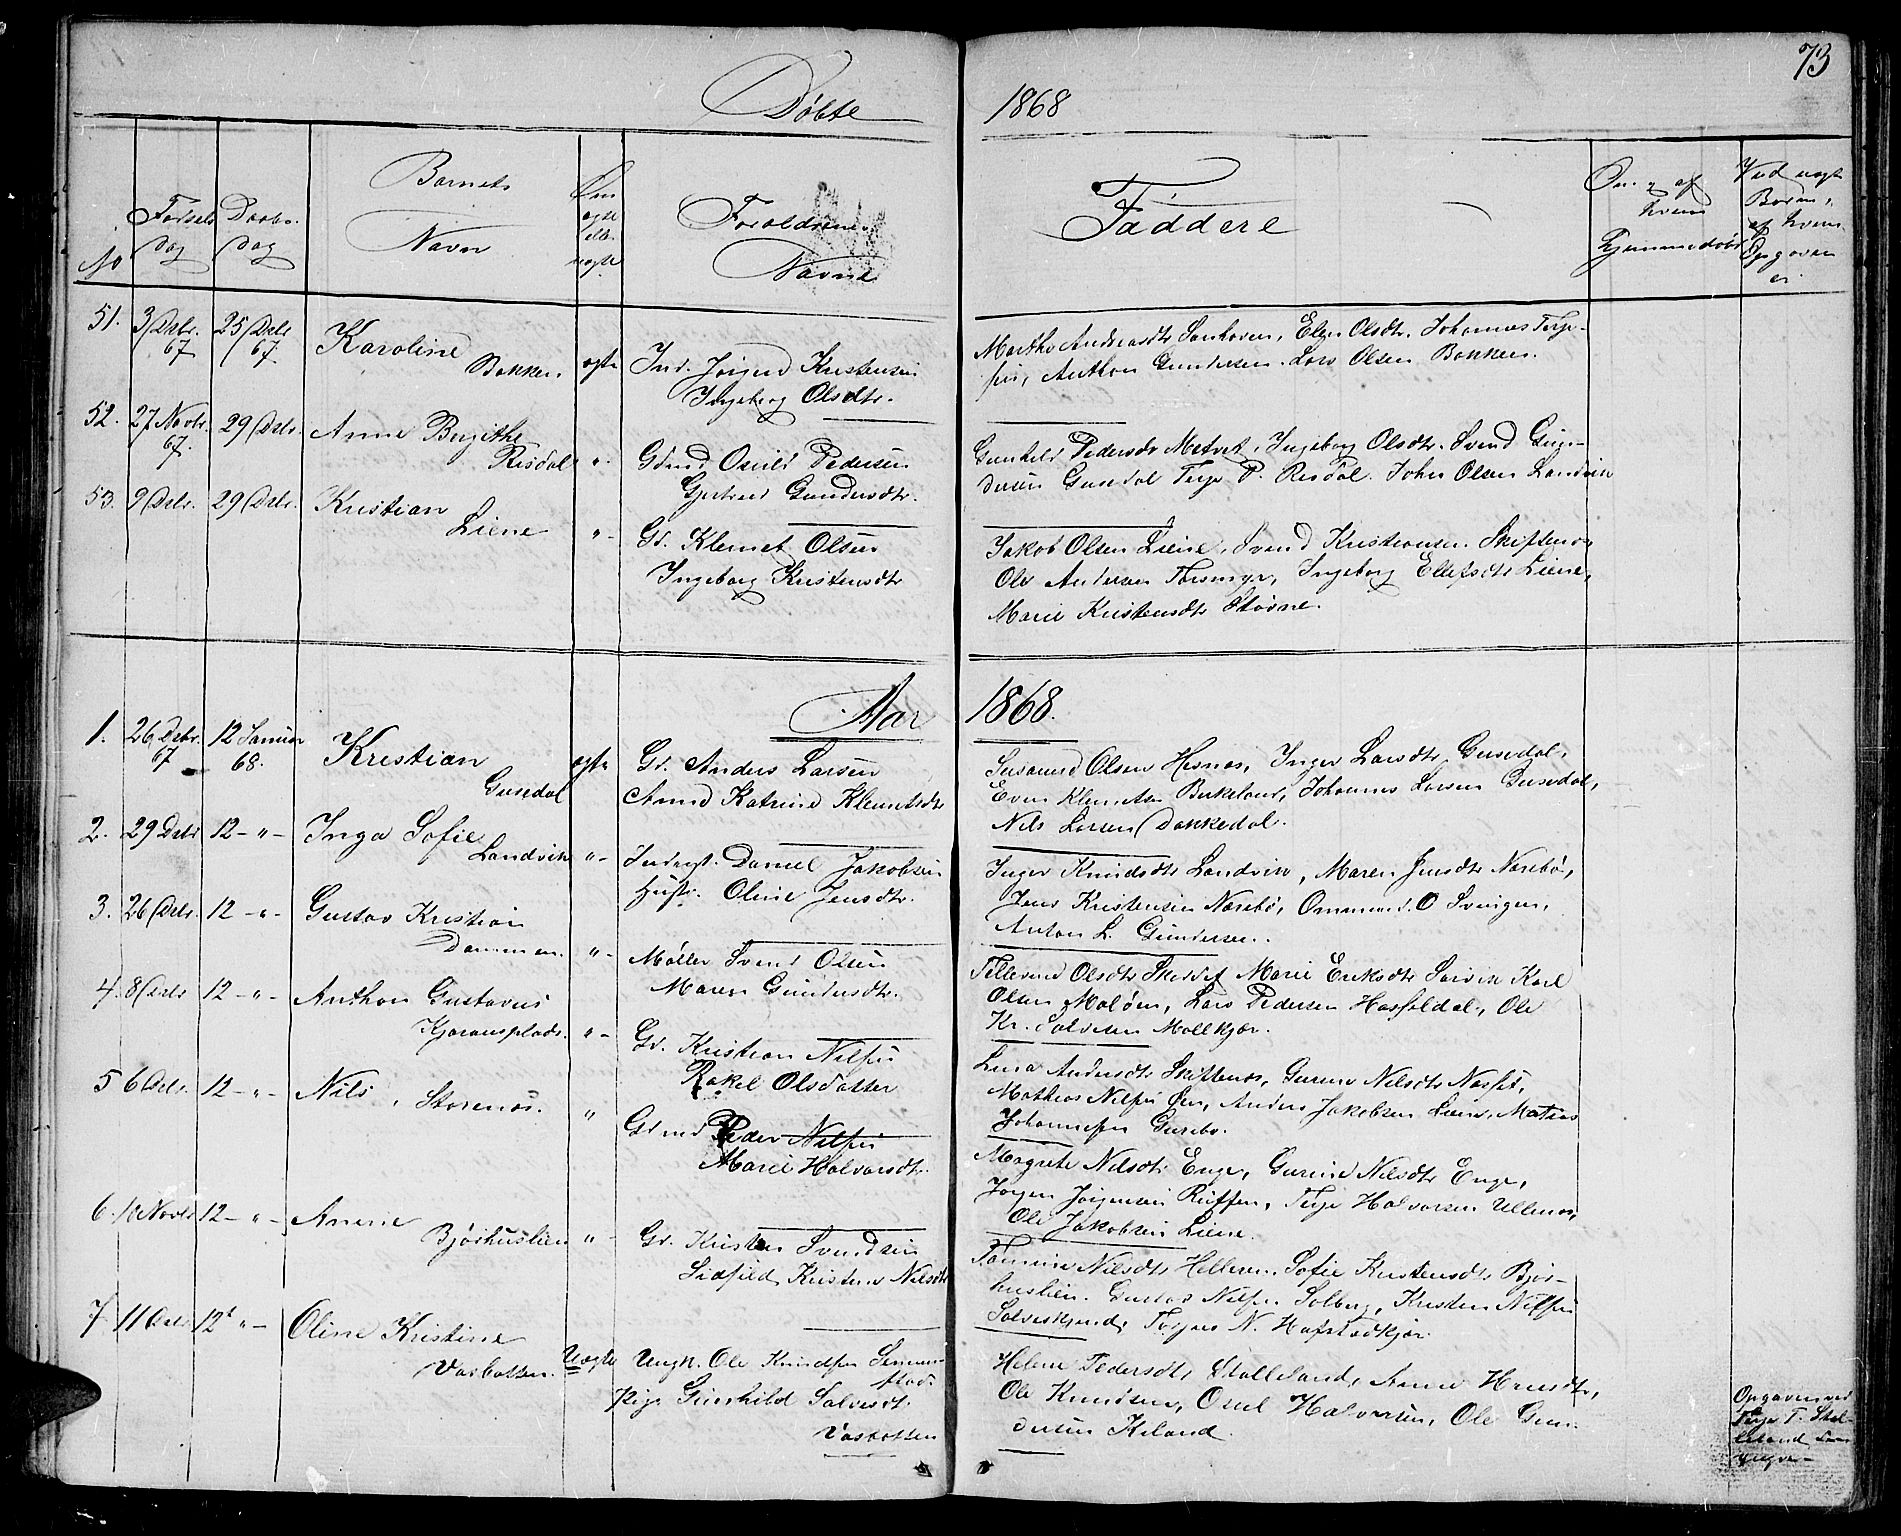 73
Døbte
1868
No
Fødsels Dag
Daabs Dag
Barnets Navn
Om ægte eller uægte
Forældrenes Navne
Faddere
Om og af hvem hjemmedøbt
Ved uægte Børn, af hvem Opgaven er
51. 3 Dcbr. 67 25 Dcbr 67. Karoline Bakken ægte Ind. Jørgen Kristensen
Ingeborg Olsdtr.
Marthe Andreasdtr Sanhaven, Elen Olsdtr. Johannes Terje-
sen, Anthon Gundersen. Lars Olsen Bakken.
52. 27 Novbr. 67. 29 Dcbr. Anne Birgithe Risdal "- Gdmd Osuld Pedersen
Gjertrud Gundersdtr.
Gunhild Pedersdtr Metvet, Ingeborg Olsdtr. Svend Gun-
dersen Gusedal Terje P. Risdal. John Olsen Landvik
53. 9 Dcbr. 29 Dcbr. Kristian Liene "- Gd. Klemet Olsen
Ingeborg Kristensdtr
Jakob Olsen Liene, Svend Kristiansen Skiftenes
Ole Andersen Torsmyr, Ingeborg Ellefsdtr Liene,
Marie Kristensdtr Støvne.
Aar 1868.
1. 26 Dcbr. 67 12 Januar 68. Kristian Gusedal ægte Gd. Anders Larsen
Anne Katrine Klemetsdtr
Susanne Olsen Hesnæs, Inger Larsdtr Gusedal,
Even Klemetsen Birkeland, Johannes Larsen Gusedal,
Nils Larsen Dokkedal.
2. 29 Dcbr 12 - " - Inga Sofie Landvik "- Inderst. Daniel Jakobsen
Hustr. Oline Jensdtr.
Inger Knudsdtr Landvik, Maren Jensdtr Narebø,
Jens Kristensen Narebø, Ommund O Svingen,
Anton L. Gundersen.
3. 26 Dcbr. 12 - " - Gustav Kristian Dammen. "- Møller Svend Olsen
Maren Gundersdtr.
Tellevine Olsdtr Skeidet Marie Eriksdtr Sørvik Karl
Olsen Moløen, Lars Pedersen Hasseldal, Ole
Kr. Salvesen Mollkjær.
4. 8 Dcbr 12 - " - Anthon Gustavus Kjøransplads. "- Gd. Kristian Nilsen
Rakel Olsdatter
Lina Andersdtr Skiftenes, Gurine Nilsdtr
Mathias Nilsen Øen, Anders Jakobsen Liene, Matias
Johannesen Gurebo.
5 6 Dcbr. 12 - " - Nils Storenes. " Gdmd Peder Nilsen
Marie Halvorsdtr.
Magrete Nilsdtr Enge, Gurine Nilsdtr Enge,
Jørgen Jørgensen Ruffen, Terje Halvorsen Ullenes,
Ole Jakobsen Liene.
6. 10 Novbr 12 - " - Anene Bjørhuslien "- Gd. Kristen Svendsen
Kristine Nilsdtr
Tomine Nilsdtr Helleren. Sofie Kristensdtr Bjør-
huslien. Gustav Nilsen Solberg, Kristen Nilsen
N. Hafstadkjær.
7 11 Dcbr 12t " - Oline Kristine Vasbotten. Uægte Ungk. Ole Knudsen
Pige Gunhild Salvesdtr.
Vasbotten
Helene Pedersdtr Stalleland, Anne
Ole Knudsen, Osul Halvorsen, Ole Gun-
dersen Kiland.
Opgaven ved
Terje T. Stal-
leland